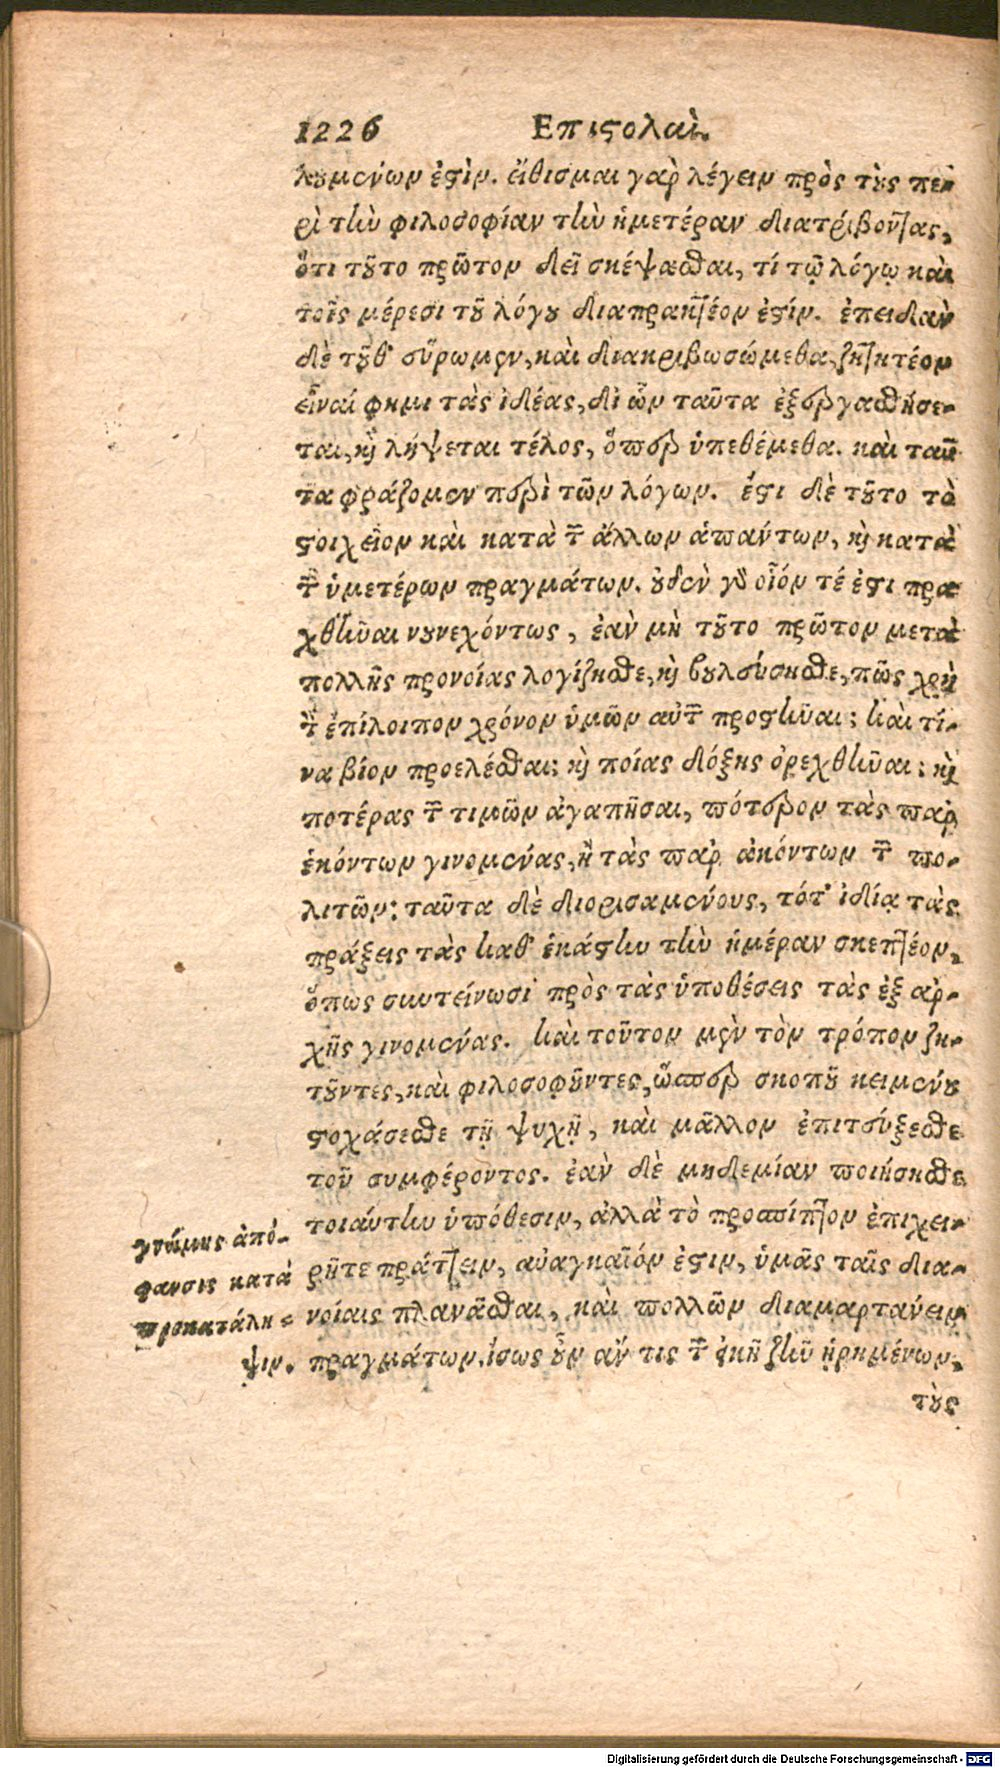 1226 Επιστολαὶ.
λουμένων ἐστὶν. εἴθισμαι γὰρ λέγειν πρὸς τοὺς πε-
ρὶ τὴν φιλοσοφίαν τὴν ἡμετέραν διατρίβοντας,
ὅτι τοῦτο πρῶτον δεῖ σκέψασθαι, τί τῷ λόγῳ καὶ
τοῖς μέρεσι τοῦ λόγου διαπρακτέον ἐστίν. ἐπειδὰν
δὲ τοῦθ' εὕρωμεν, καὶ διακριβωσώμεθα, ζητητέον
εἶναί φημι τὰς ἰδέας, δι ὧν ταῦτα ἐξεργασθήσε-
ται, καὶ λήψεται τέλος, ὅπερ ὑπεθέμεθα. καὶ ταῦ-
τα φράζομεν περὶ τῶν λόγων. ἔστι δὲ τοῦτο τὸ
στοιχεῖον καὶ κατὰ τῶν ἄλλων ἁπάντων, καὶ κατὰ
τῶν ὑμετέρων πραγμάτων. οὐδὲν γὰρ οἷόν τέ ἐστι πρα
χθῆναι νουνεχόντως, ἐὰν μὴ τοῦτο πρῶτον μετὰ
πολλῆς προνοίας λογίζησθε, καὶ βουλεύσησθε, πῶς χρὴ
τὸν ἐπίλοιπον χρόνον ὑμῶν αὐτῶν προστῆναι; καὶ τί-
να βίον προελέσθαι; καὶ ποίας δόξης ὀρεχθῆναι; καὶ
ποτέρας τῶν τιμῶν ἀγαπῆσαι, πότερον τὰς παρ
ἑκόντων γινομένας, ἢ τὰς παρ ἀκόντων τῶν πο-
λιτῶν; ταῦτα δὲ διορισαμένους, τότ' ἰδίᾳ τὰς
πράξεις τὰς καθ' ἑκάστην τὴν ἡμέραν σκεπτέον,
ὅπως συντείνωσι πρὸς τὰς ὑποθέσεις τὰς ἐξ ἀρ-
χῆς γινομένας. καὶ τοῦτον μὲν τὸν τρόπον ζη-
τοῦντες, καὶ φιλοσοφοῦντες, ὥσπερ σκοποῦ κειμένου
στοχάσεσθε τῇ ψυχῇ, καὶ μᾶλλον ἐπιτεύξεσθε
τοῦ συμφέροντος. ἐὰν δὲ μηδεμίαν ποιήσησθε
τοιαύτην ὑπόθεσιν, ἀλλὰ τὸ προσπίπτον ἐπιχει-
ρῆτε πράττειν, ἀναγκαῖόν ἐστιν, ὑμᾶς ταῖς δια-
νοίαις πλανᾶσθαι, καὶ πολλῶν διαμαρτάνειν
πραγμάτων. ἴσως οὖν ἄν τις τῶν εἰκῆ ζῆν ᾑρημένων,
τοὺς
γνώμης ἀπό-
φανσις κατὰ
προκατάλη-
ψιν.
Digitalisierung gefördert durch die Deutsche Forschungsgemeinschaft - DFG